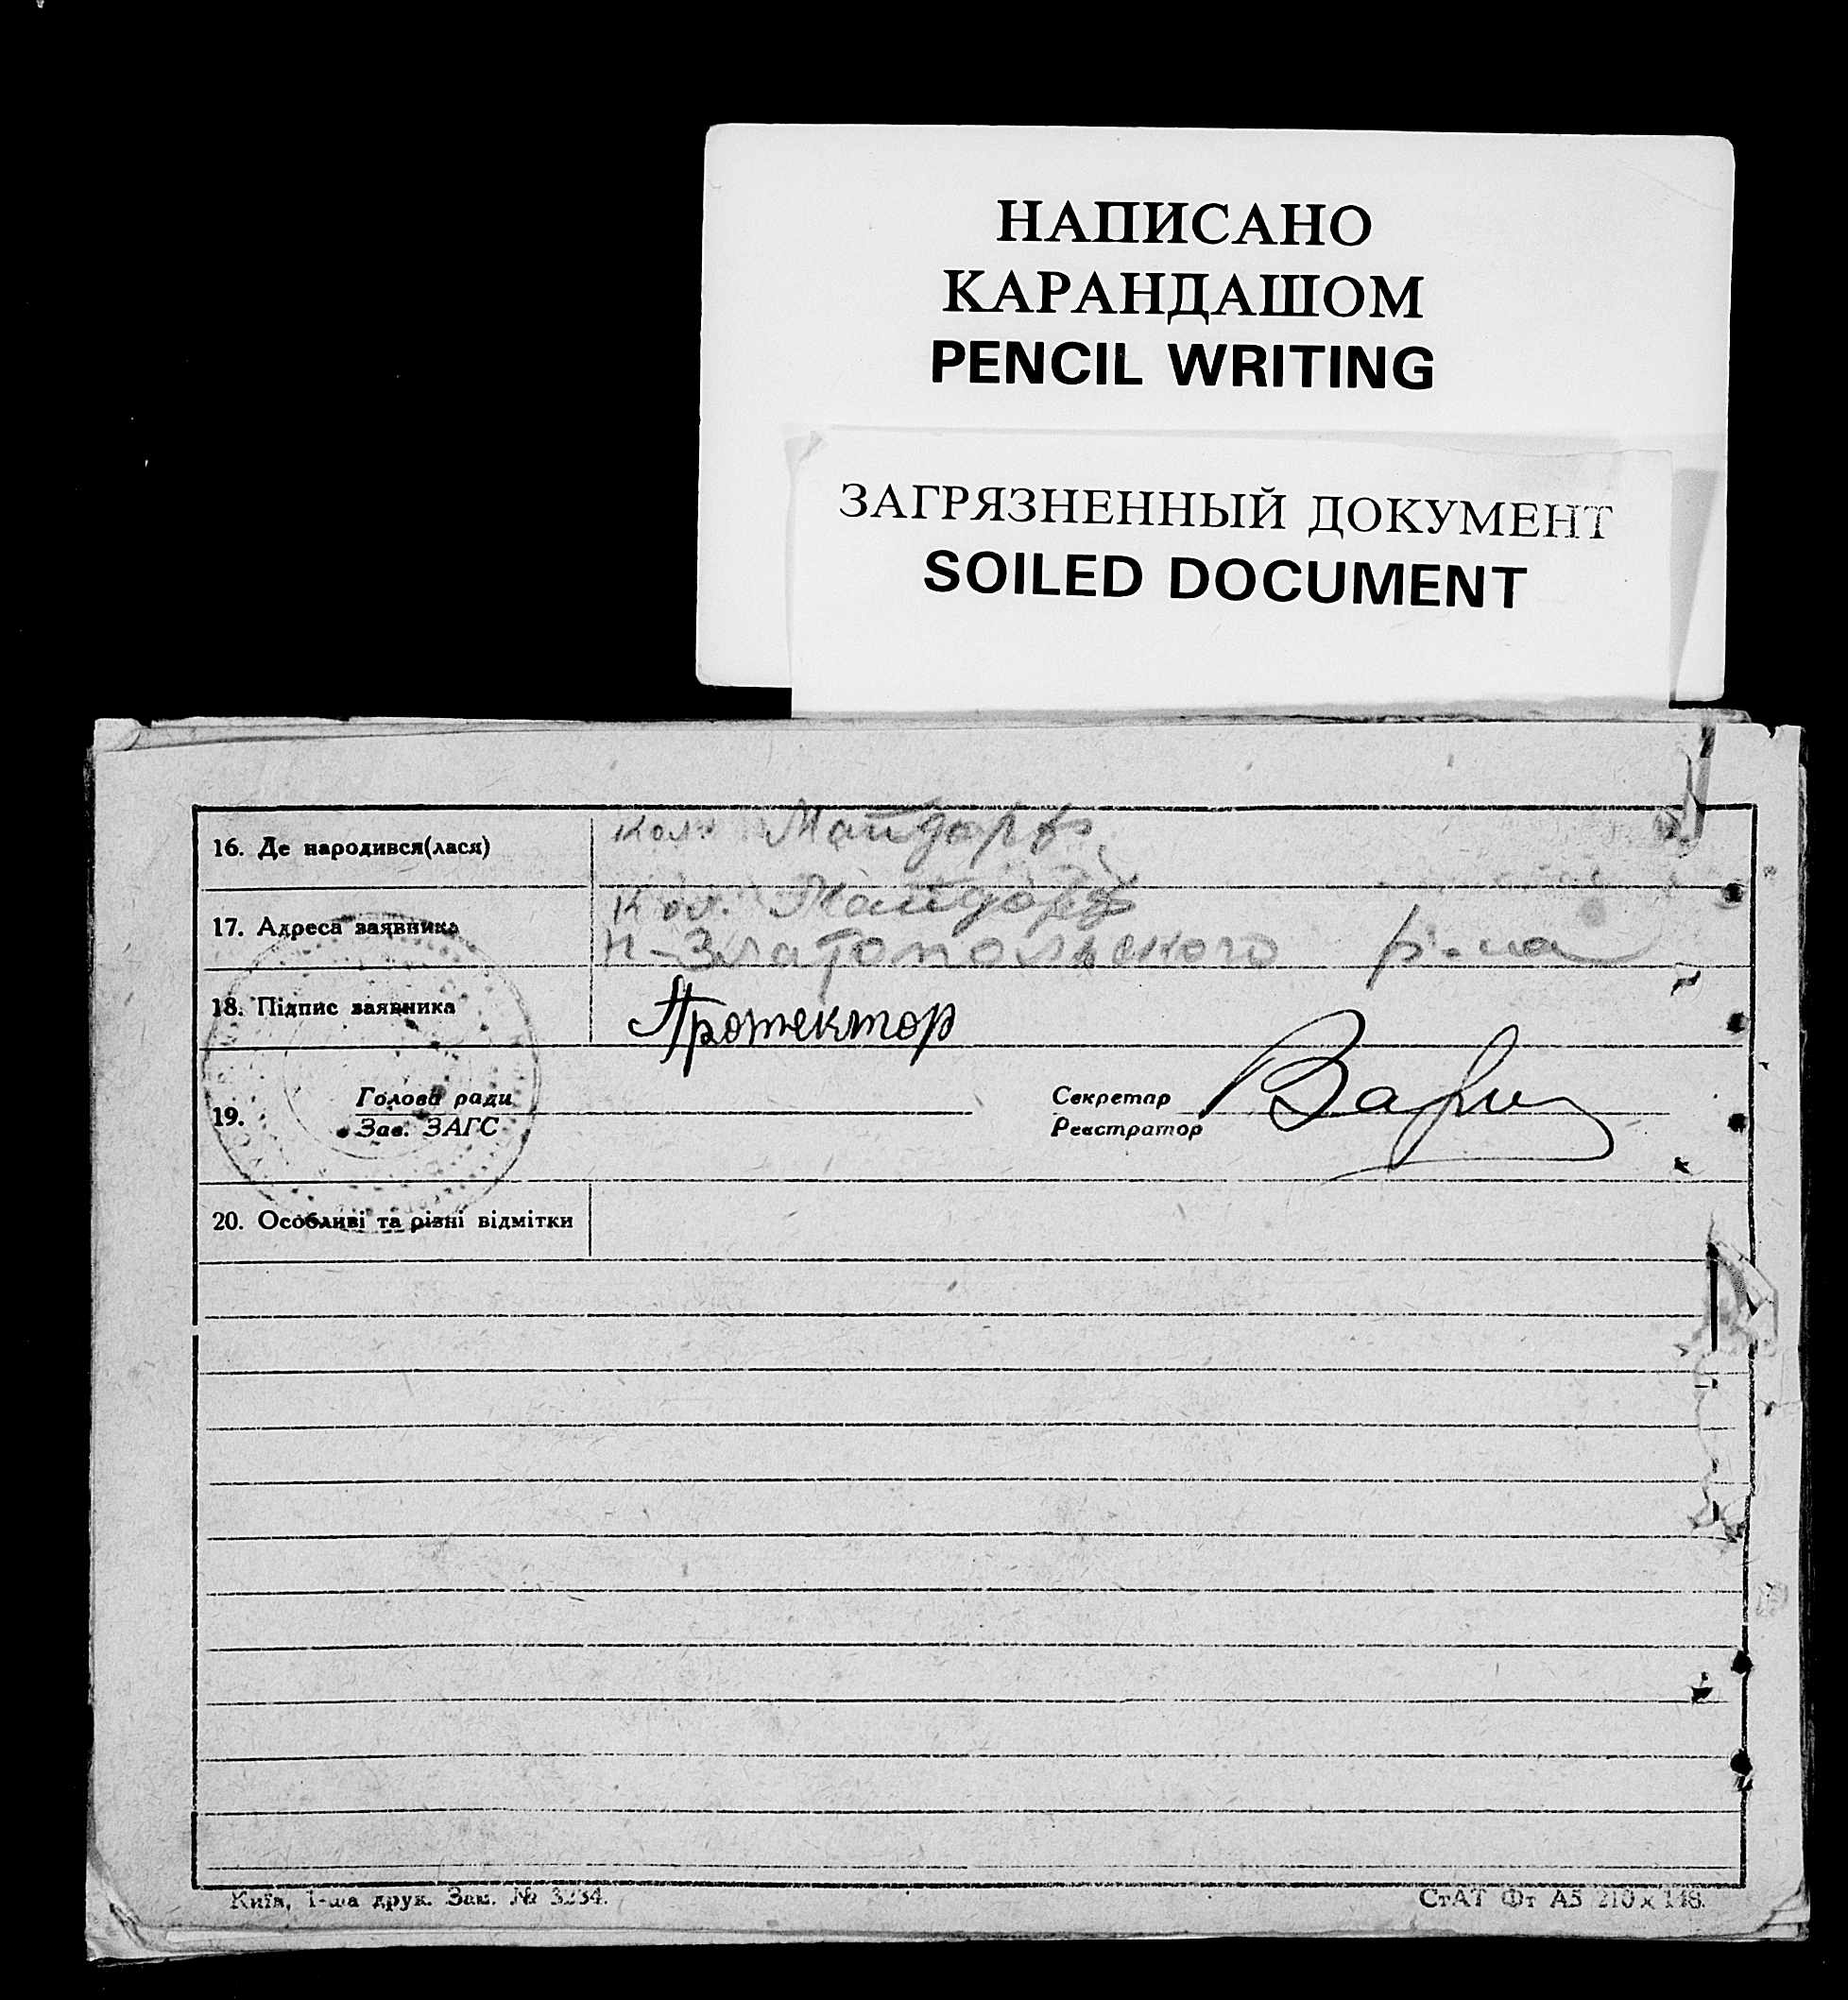 НАПИСАНО
КАРАНДАШОМ
PENCIL WRITING
ЗАГРЯЗНЕННЫЙ ДОКУМЕНТ
SOILED DOCUMENT
16. Де народився(лася) кол. Майдорф
17. Адреса заявника кол. Майдорф
Н-Златопольского р-на
18. Підпис заявника Протектор
19. Голова ради Секретар
Зав. ЗАГС Реєстратор
20. Особливі та різні відмітки
Київ, 1-ша друк. Зам. № 3234. СтАТ Фт А5 210 x 148.